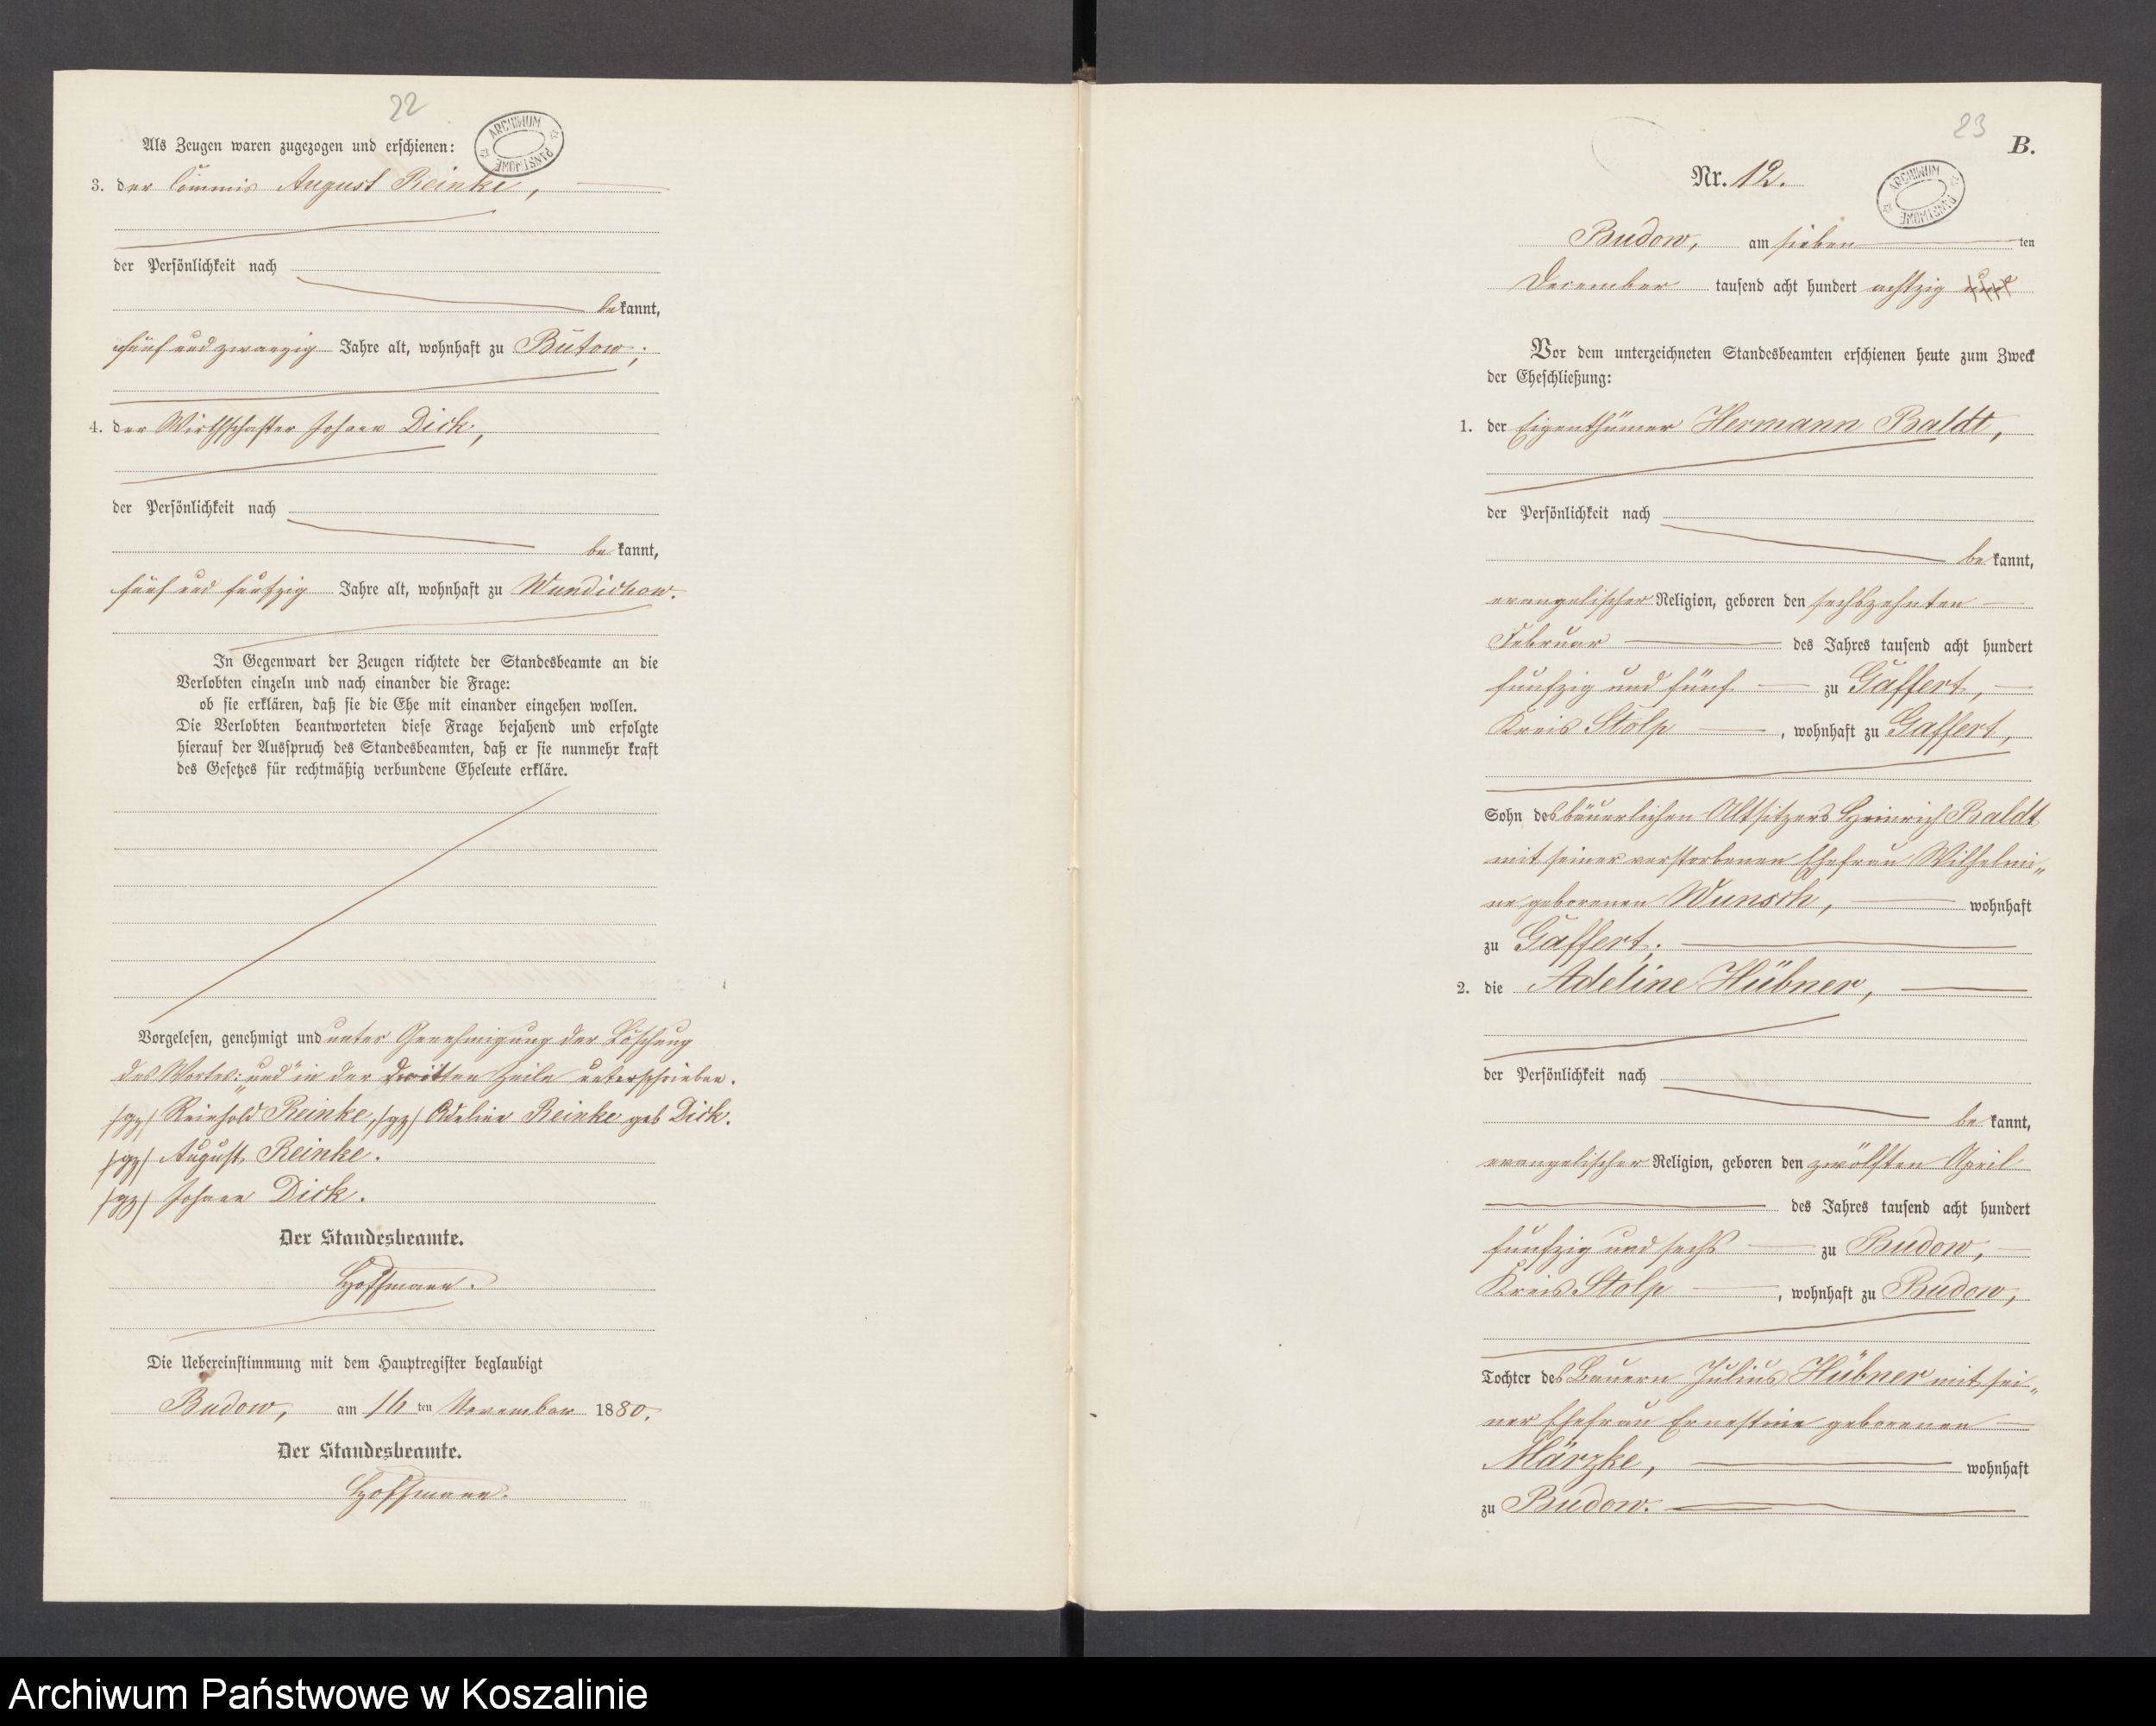 22
ARCHIWUM PAŃSTWOWE
Als Zeugen waren zugezogen und erschienen:
3. der Commis August Reinke,
der Persönlichkeit nach
bekannt,
fünf und zwanzig Jahre alt, wohnhaft zu Bütow;
4. der Wirthschafter Johann Dick,
der Persönlichkeit nach
be kannt,
fünf und funfzig Jahre alt, wohnhaft zu Wundichow.
In Gegenwart der Zeugen richtete der Standesbeamte an die
Verlobten einzeln und nach einander die Frage:
ob sie erklären, daß sie die Ehe mit einander eingehen wollen.
Die Verlobten beantworteten diese Frage bejahend und erfolgte
hierauf der Ausspruch des Standesbeamten, daß er sie nunmehr kraft
des Gesetzes für rechtmäßig verbundene Eheleute erkläre.
Vorgelesen, genehmigt und unter Genehmigung der Löschung
des Wortes: „und" in der dritten Zeile unterschrieben.
/gz/ Reinhold Reinke, /gz/ Adeline Reinke geb Dick.
/gz/ August Reinke.
/gz/ Johann Dick.
Der Standesbeamte.
Hoffmann.
Die Uebereinstimmung mit dem Hauptregister beglaubigt
Budow, am 16 ten November 1880.
Der Standesbeamte.
Hoffmann.
23
B.
Nr. 12.
ARCHIWUM PAŃSTWOWE
Budow, am sieben ten
December tausend acht hundert achtzig und
Vor dem unterzeichneten Standesbeamten erschienen heute zum Zweck
der Eheschließung:
1. der Eigenthümer Hermann Baldt,
der Persönlichkeit nach
be kannt,
evangelischer Religion, geboren den sechszehnten
Februar des Jahres tausend acht hundert
funfzig und fünf zu Gaffert,
Kreis Stolp, wohnhaft zu Gaffert,
Sohn des bäuerlichen Altsitzers Heinrich Baldt
mit seiner verstorbenen Ehefrau Wilhelmi„
ne geborenen Wunsch, wohnhaft
zu Gaffert;
2. die Adeline Hübner,
der Persönlichkeit nach
be kannt,
evangelischer Religion, geboren den zwölften April
des Jahres tausend acht hundert
funfzig und sechs zu Budow,
Kreis Stolp, wohnhaft zu Budow,
Tochter des Bauern Julius Hübner mit sei„
ner Ehefrau Ernestine geborenen
Märzke, wohnhaft
zu Budow.
Archiwum Państwowe w Koszalinie